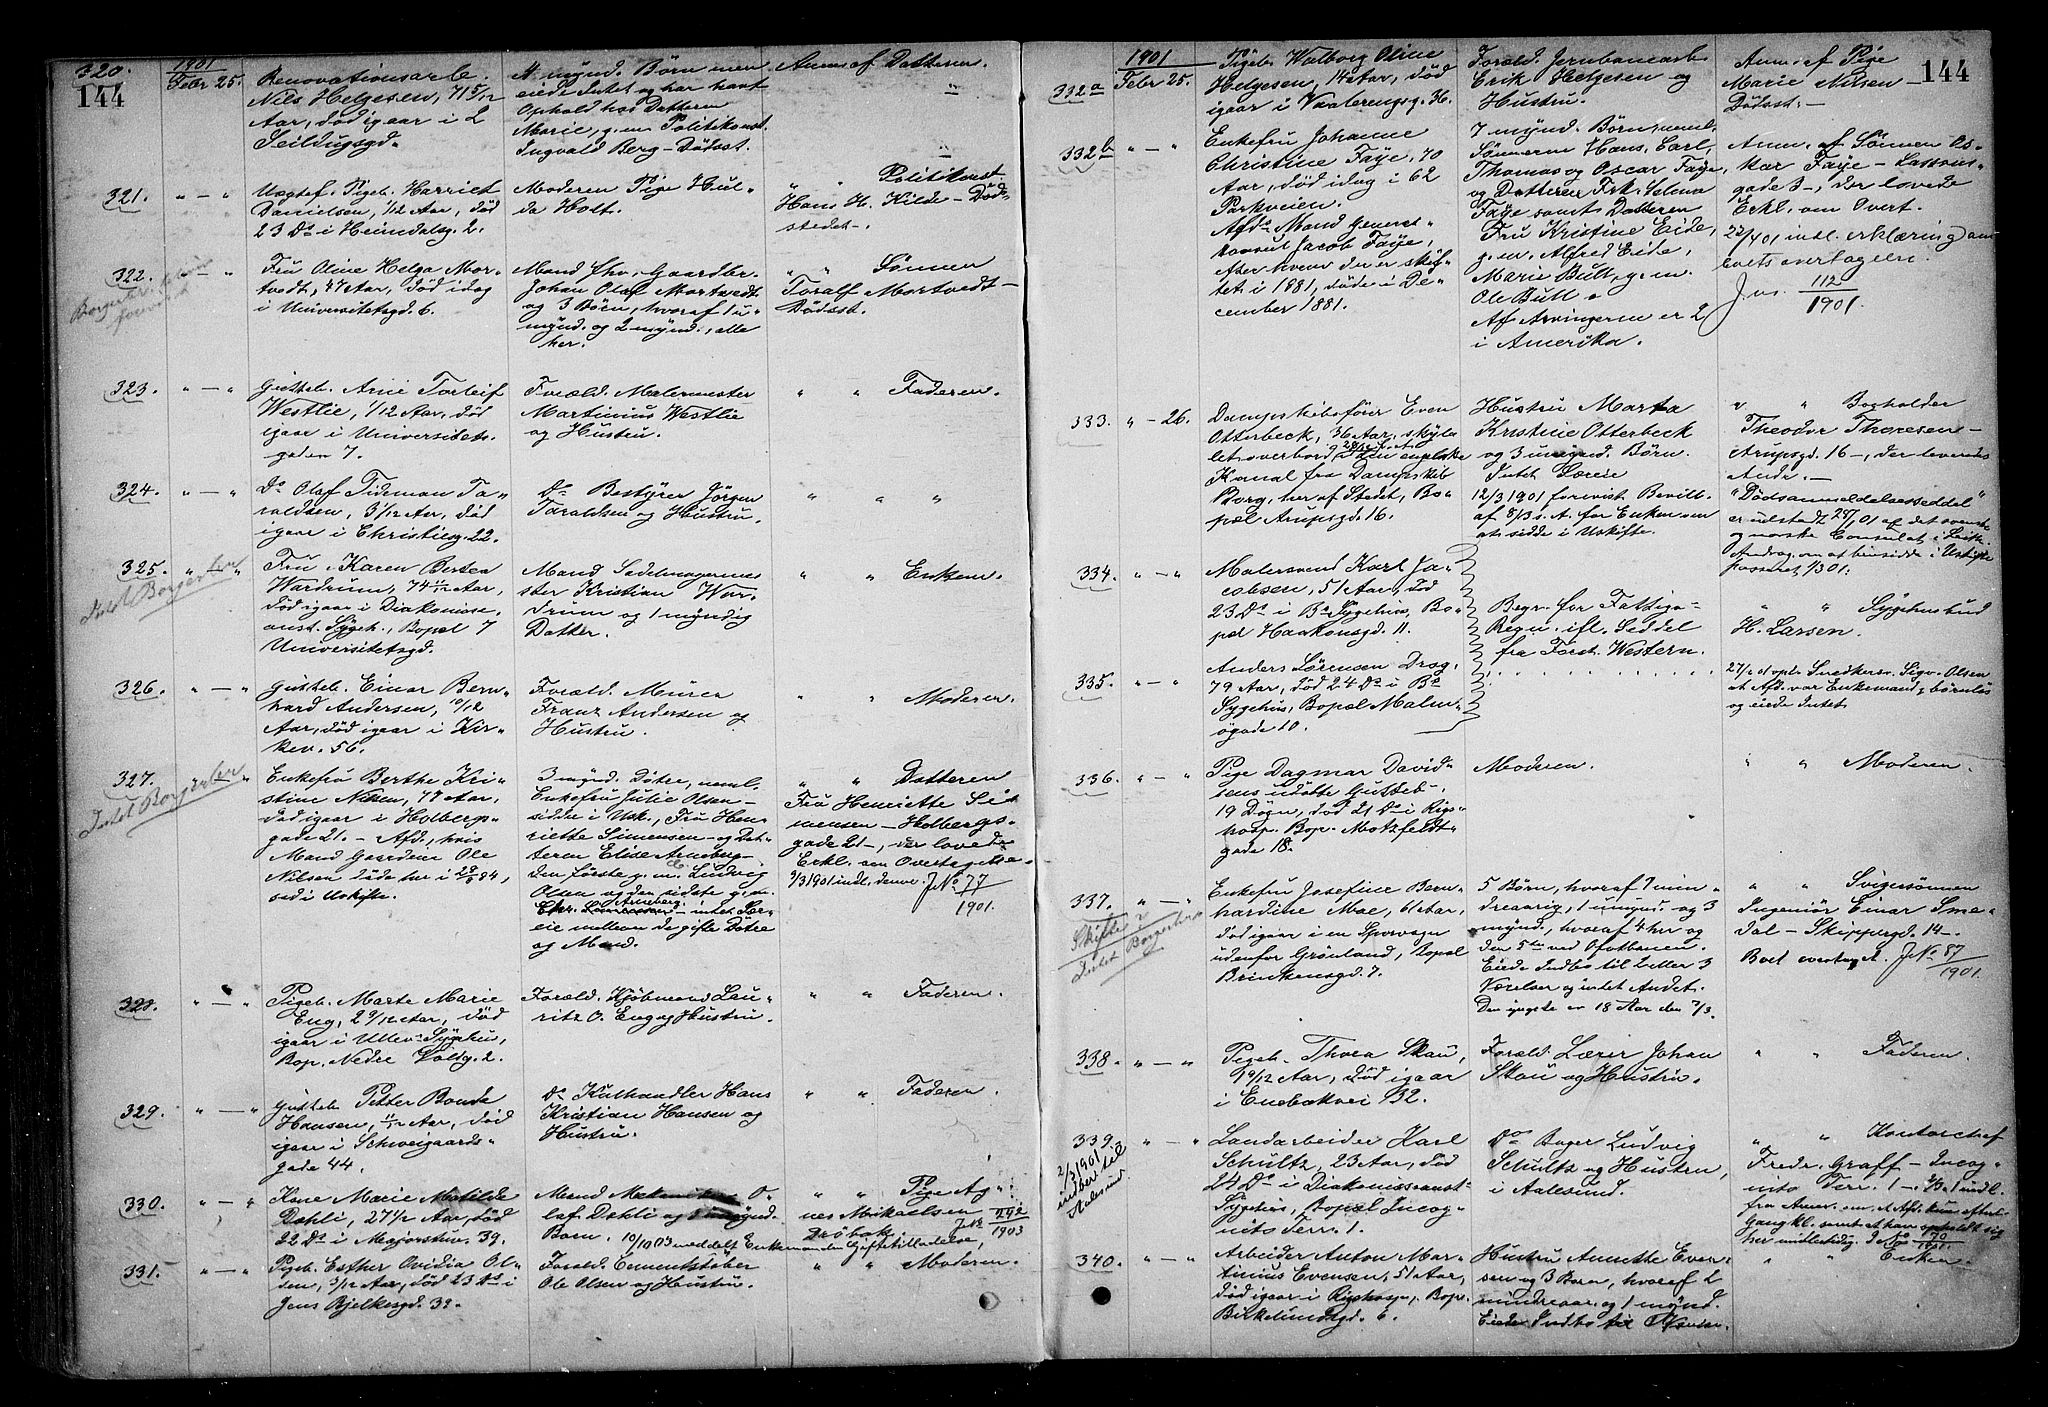 144
320.
1901
Febr 25.
Renovationsarb.
Nils Helgesen, 71 5/12
Aar, död igaar i 2
Seildugsgd.
4 mynd. Börn men
eiede Intet og har havt
Ophold hos Datteren
Marie, g. m. Politikonst.
Ingvald Berg - Dödsst.
Anm. af Datteren.
321.
" — "
Uægtef. Pigeb. Harriet
Danielsen, 1/12 Aar, död
23 Ds i Heimdalsg. 2.
Moderen Pige Hul-
da Holt.
" " Politikonst.
Hans H. Kilde - Död-
stedet -.
322.
" — "
Fru Oline Helga Mor-
tvedt, 47 Aar, död idag
i Universitetsgd. 6.
Mand fhv. Gaardbr.
Johan Olaf Mortvedt
og 3 Börn, hvoraf 1 u-
mynd. og 2 mynd., alle
her.
" " Sönnen
Toralf Mortvedt -
Dödsst.
323.
" — "
Gutteb. Arne Torleif
Westlie, 1/12 Aar, död
igaar i Universitets-
gaden 7.
Foræld. Malermester
Martinius Westlie
og Hustru.
" " Faderen.
324.
" — "
Do Olaf Tideman Ta-
raldsen, 3/12 Aar, död
igaar i Christiesg. 22.
Do Bestyrer Jörgen
Taraldsen og Hustru.
" " "
325.
Intet Borgerbrev
" — "
Fru Karen Bertea
Wardrum, 74 11/12 Aar,
död igaar i Diakonisse-
anst. Sygeh., Bopæl 7
Universitetsgd.
Mand Sadelmagermes-
ter Kristian War-
drum og 1 myndig
Datter.
" " Enkem.
326.
" — "
Gutteb. Einar Bern-
hard Andersen, 10/12
Aar, död igaar i Kir-
kev. 56.
Foræld. Murer
Franz Andersen og
Hustru.
" " Moderen.
327.
Intet Borgerbrev
" — "
Enkefru Berthe Kri-
stine Nilsen, 77 Aar,
död igaar i Holbergs-
gade 21. - Afd., hvis
Mand Gaardeier Ole
Nilsen döde her i 84,
sad i Uskifte.
3 mynd. Dötre, neml.
Enkefru Julie Olsen -
sidde i Usk., Fru Hen-
riette Simensen - og Dat-
teren Elise Arneberg -
den förste g. m. Ludvig
Olsen og den sidste g. m.
Chr. Arneberg - intet Sær-
eie mellem de gifte Dötre
og Mænd.
" " Datteren
Fru Henriette Si-
mensen - Holbergs-
gade 21 -, der lovede
Erkl. om Overtagelse.
/3 1901 indl. denne. J No 77
1901.
328.
" — "
Pigeb. Marte Marie
Eng, 2 9/12 Aar, död
igaar i Ullev. Sygehus,
Bop. Nedre Voldg. 2.
Foræld. Kjöbmand Lau-
ritz O. Eng og Hustru.
" " Faderen.
329.
" — "
Gutteb. Petter Bonde
Hansen, 11/12 Aar, död
igaar i Schweigaards-
gade 44.
Do Kulhandler Hans
Kristian Hansen og
Hustru.
" " Faderen.
330.
" — "
Kone Marie Matilde
Dahli, 27 1/2 Aar, död
22 Ds i Majorstuv. 39.
Mand O-
laf Dahli og umynd.
Barn. 10/10 03 meddelt Enkemanden Giftetilladelse,
" " Pige Ag-
nes Mikaelsen
Dröbak. J No 292
1903
331.
" — "
Pigeb. Esther Ovidia Ol-
sen, 3/12 Aar, död 23 Ds i
Jens Bjelkesgd. 39.
Foræld. Cementstöber
Ole Olsen og Hustru.
" " Moderen.
144
1901
332a
Febr 25.
Pigeb. Walborg Oline
Helgesen, 14 Aar, död
igaar i Vaalerengsg. 36.
Foræld. Jernbanearb.
Erik Helgesen og
Hustru.
Anm. af Pige
Marie Nilsen
Dödsst. -
332b
" — "
Enkefru Johanne
Christine Faye, 70
Aar, död idag i 62
Parkveien.
Afds Mand General-
konsul Jacob Faye,
efter hvem der er skif-
tet i 1881, döde i De-
cember 1881.
7 mynd. Börn, neml.
Sönnerne Hans, Carl,
Thomas og Oscar Faye,
og Datteren Frk. Selma
Faye samt Datteren
Fru Kristine Eide,
g. m. Alfred Eide,
Marie Bull, g. m.
Ole Bull.
Af Arvingerne er 2
i Amerika.
Anm. af Sönnen Os-
kar Faye - Lassons-
gade 3 -, der lovede
Erkl. om Overt.
22/4 01 indl. erklæring om
boets overtagelse.
J no. 112
1901.
333.
" — 26.
Dampskibsförer Even
Otterbeck, 36 Aar, skyl-
let overbord i den engelske
Kanal fra Dampskib
Borg, her af Stedet, Bo-
pæl Arupsgd. 16.
Hustru Marta
Kristine Otterbeck
og 3 umynd. Börn.
Intet Særeie
12/3 1901 forevist Bevill.
af 8/3 s. A. for Enken om
at sidde i Uskifte.
" " Bogholder
Theodor Thoresen -
Arupsgd. 16 -, der leverede
Andr. -
"Dödsanmeldelsesseddel"
er udstedt 29/1 01 af det svenske
og norske Consulat i Leith.
Andrag. om at hensidde i Uskifte
passeret 1/3 01.
334.
" — "
Malersvend Karl Ja-
cobsen, 51 Aar, död
23 Ds i Bs Sygehus, Bo-
pæl Haakonsgd. 11.
Begr. for Fattigv.
Regn. ifl. Seddel
fra Forst. Western.
" " Sygehusbud
H. Larsen.
335.
" — "
Anders Sörensen Drog,
79 Aar, död 24 Ds i Bs
Sygehus, Bopæl Malm-
ögade 10.
27/2 01 opl. Snedkersv. Sigv. Olsen
at Afd. var Enkemand, barnlös
og eiede Intet.
336.
" — "
Pige Dagmar David-
sens udöbte Gutteb.,
19 Dögn, död 21 Ds i Rigs-
hosp. Bop. Motzfeldt-
gade 18.
Moderen.
" " Moderen.
337.
Skifte
Intet Borgerbrev
" — "
Enkefru Josefine Bern-
hardine Moe, 61 Aar,
död igaar i en Sporvogn
udenfor Grönland, Bopæl
Brinkensgd. 7.
5 Börn, hvoraf 1 min-
dreaarig, 1 umynd. og 3
mynd., hvoraf 4 her og
den 5te ved Ofotbanen.
Eiede Indbo til 2 eller 3
Værelser og intet Andet.
Den yngste er 18 Aar den 7/3.
" " Svigersönnen
Ingeniör Einar Sme-
dal - Skippergd. 14 -
Boet overtaget. J No 87
1901.
338.
" — "
Pigeb. Thora Skau,
1 9/12 Aar, död igaar
i Enebakvei B2.
Foræld. Lærer Johan
Skau og Hustru.
" " Faderen.
339.
2/3 1901
indber. til
Aalesund
" — "
Landarbeider Karl
Schultz, 23 Aar, död
24 Ds i Diakonisseanst.
Sygehus, Bopæl Incog-
nito Terr. 1.
Do Bager Ludvig
Schultz og Hustru,
i Aalesund.
" " Kontorchef
Fredr. Graff - Incog-
nito Terr. 1 - indl.
fra Anm. om at Afd. kun efterl.
Gangkl. samt at han opholdt sig
her midlertidig. J No 70
1901.
340.
" — "
Arbeider Anton Mar-
tinius Evensen, 51 Aar,
död igaar i Rigshosp., Bop.
Birkelundsgd. 6.
Hustru Annette Even-
sen og 3 Børn, hvoraf 2
mindreaar. og 1 mynd.
Eiede Indbo til
" Enken.